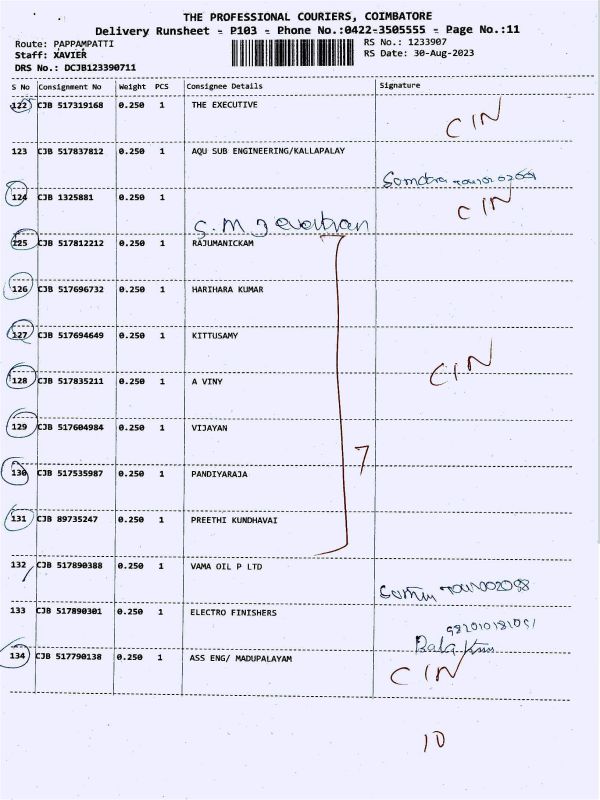 THE PROFESSIONAL COURIERS, COIMBATORE
Delivery Runsheet - P103 - Phone No.:0422-3505555 - Page No.:11
Route: PAPPAMPATTI RS No.: 1233907
Staff: XAVIER RS Date: 30-Aug-2023
DRS No.: DCJB123390711
S No Consignment No Weight PCS Consignee Details Signature
122 CJB 517319168 0.250 1 THE EXECUTIVE
CIN
123 CJB 517837812 0.250 1 AQU SUB ENGINEERING/KALLAPALAY
124 CJB 1325881 0.250 1
CIN
S.M
125 CJB 517812212 0.250 1 RAJUMANICKAM
126 CJB 517696732 0.250 1 HARIHARA KUMAR
127 CJB 517694649 0.250 1 KITTUSAMY
CIN
128 CJB 517835211 0.250 1 A VINY
129 CJB 517604984 0.250 1 VIJAYAN
7
130 CJB 517535987 0.250 1 PANDIYARAJA
131 CJB 89735247 0.250 1 PREETHI KUNDHAVAI
132 CJB 517890388 0.250 1 VAMA OIL P LTD
133 CJB 517890301 0.250 1 ELECTRO FINISHERS
134 CJB 517790138 0.250 1 ASS ENG/ MADUPALAYAM
CIN
10